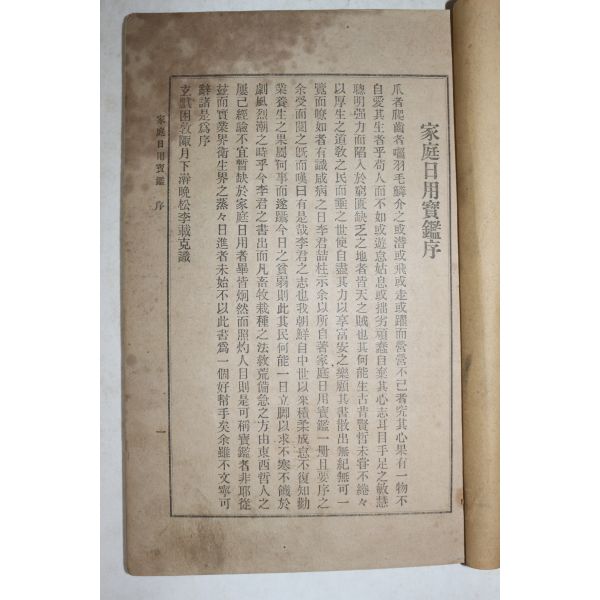 家庭日用寶鑑序
爪者爬齒者囓羽毛鱗介之或潛或飛或走或躍而營營不已者究其心果有一物不
自愛其生者乎苟人而不如或遊怠姑息或拙劣頑蠢自棄其心志耳目手足之敏慧
聰明强力而陷入於窮匱缺乏之地者皆天之賊也其何能生古昔賢哲未甞不惓々
以厚生之道敎之民而垂之世使自盡其力以享富安之樂顧其書散出無紀無可一
覽而瞭如者有識咸病之日李君喆柱示余以所自著家庭日用寶鑑一冊且要序之
余受而閱之旣而嘆曰有是哉李君之志也我朝鮮自中世以來積柔成怠不復知勸
業養生之果屬何事而遂躋今日之貧弱則此其民何能一日立脚以求不寒不饑於
劇風烈潮之時乎今李君之書出而凡畜牧栽種之法救荒備急之方由東西哲人之
屢已經驗不宜暫缺於家庭日用者畢皆炯然而照灼人目則是可稱寶鑑者非耶從
玆而實業界衛生界之蒸々日進者未始不以此書爲一個好幇手矣余雖不文寧可
辭諸是爲序
玄黓困敦陬月下澣晩松李載克識
家庭日用寶鑑 序
一